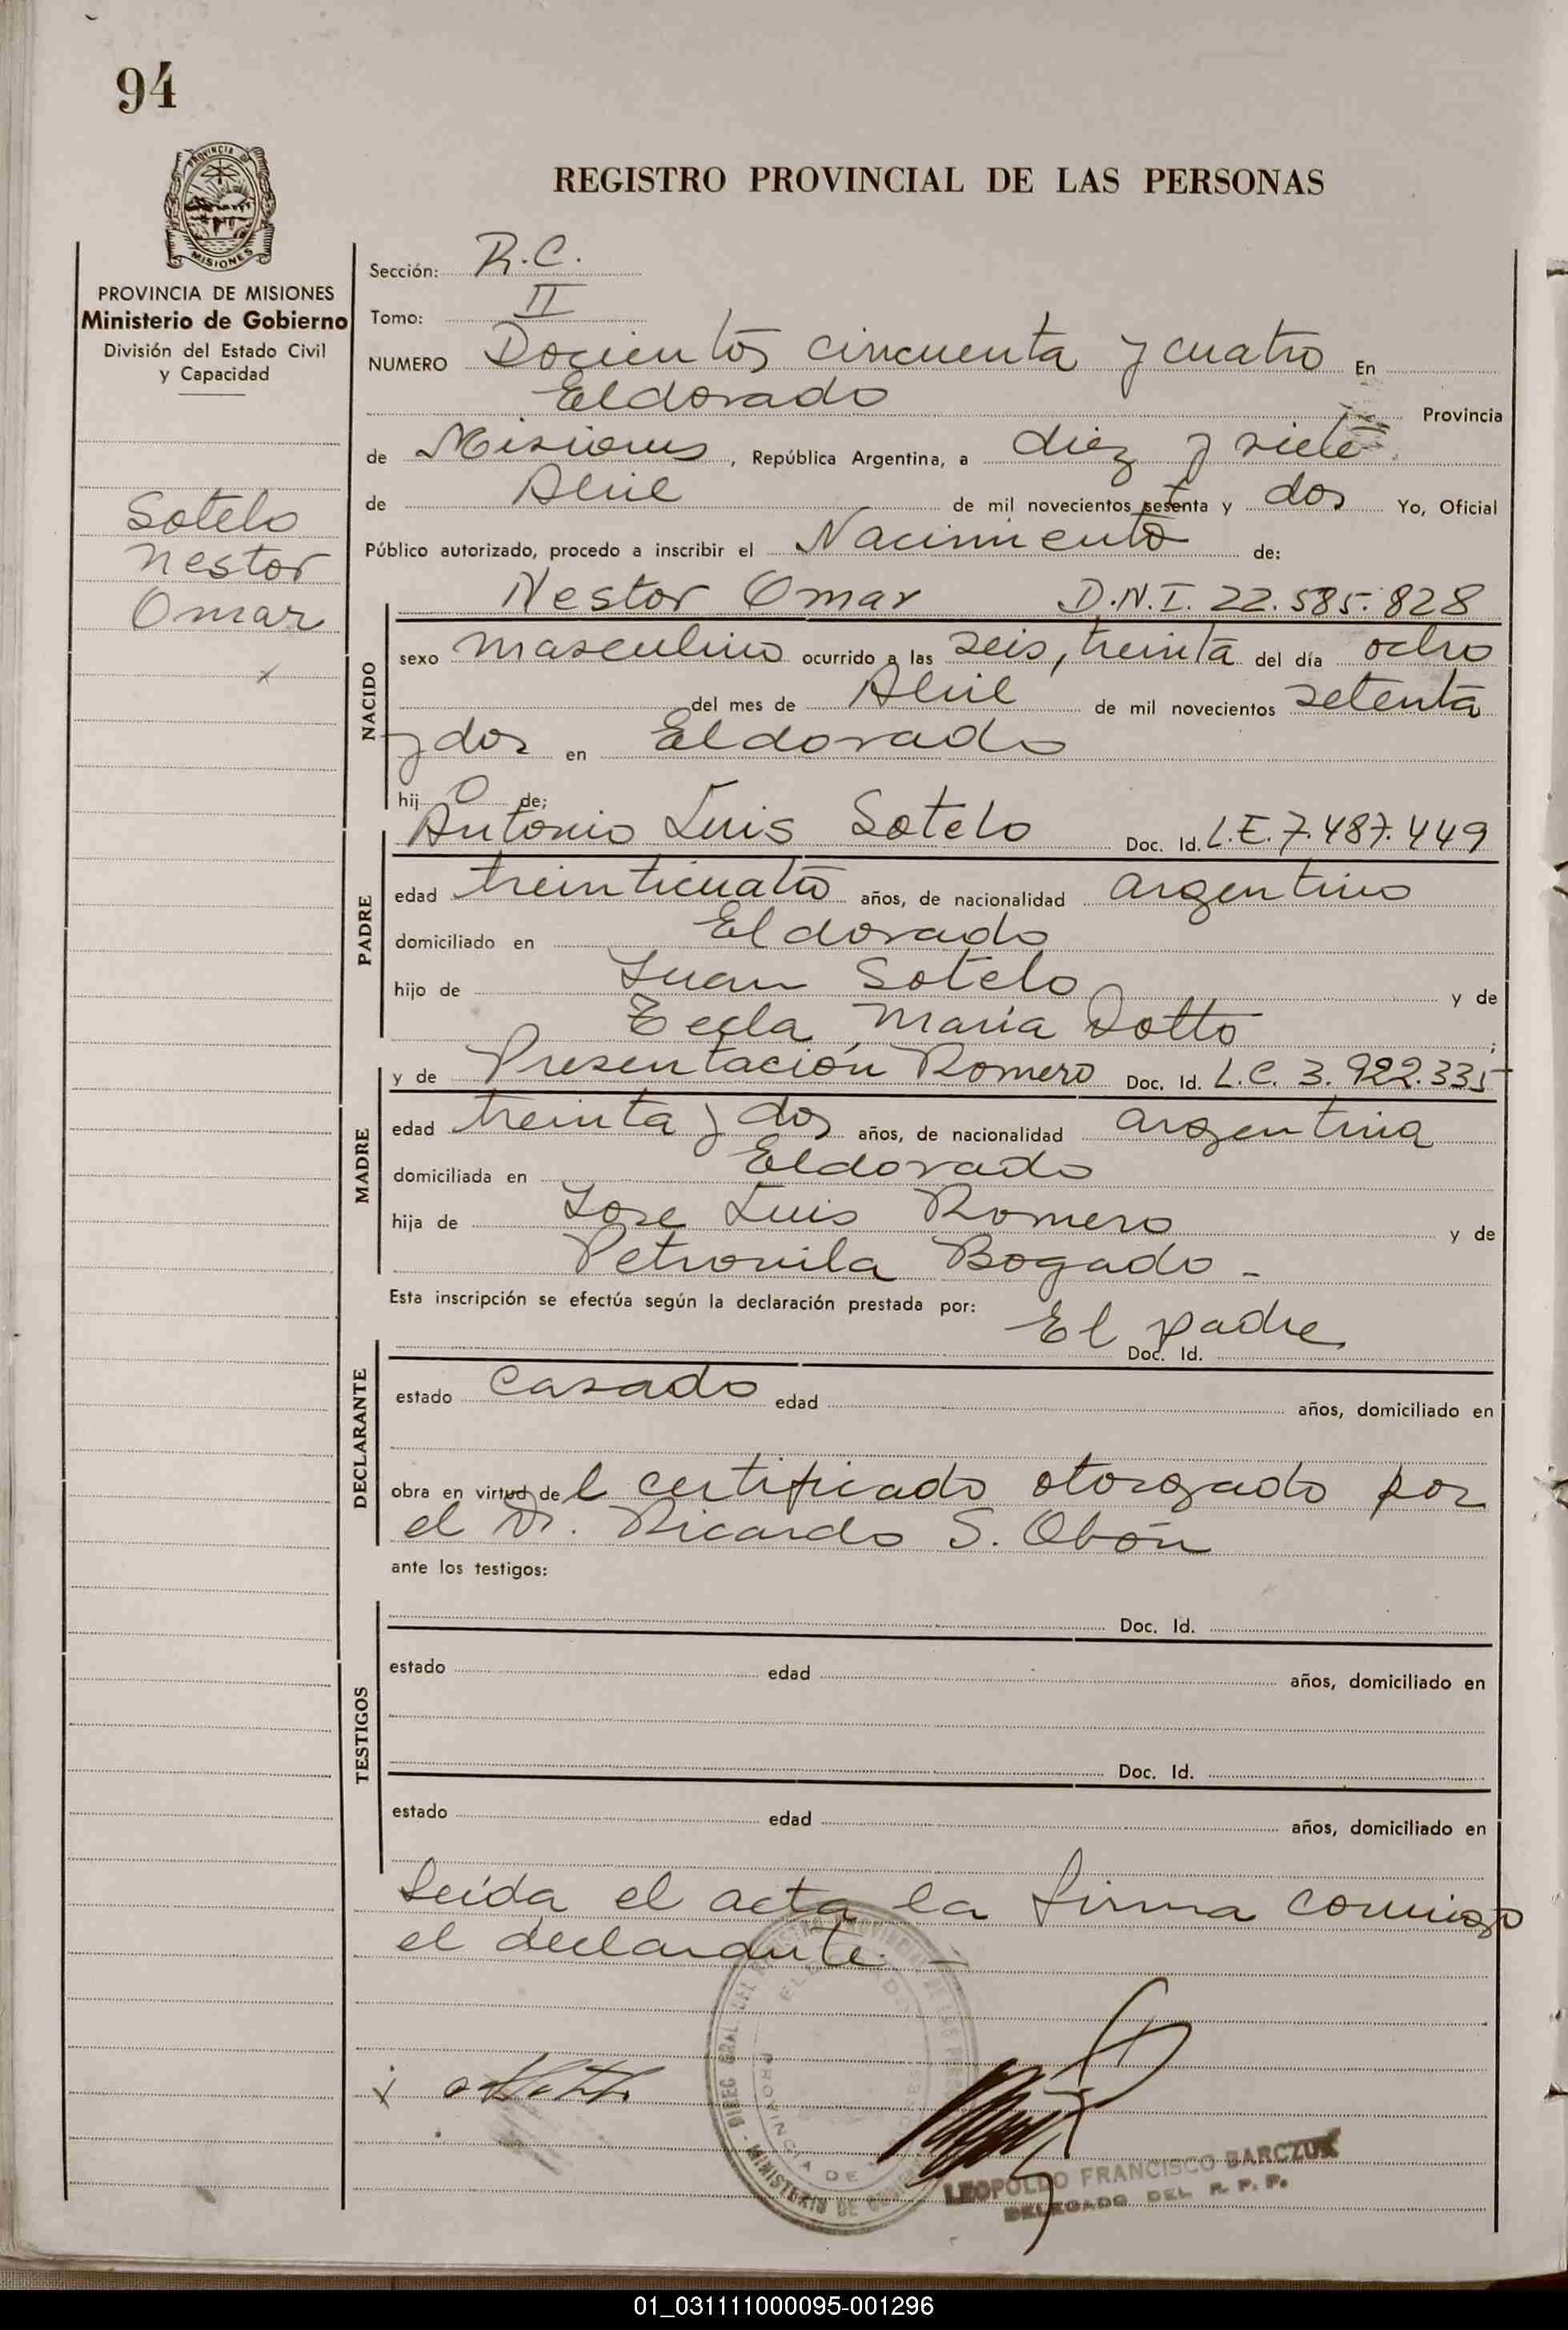 94
PROVINCIA DE
MISIONES
PROVINCIA DE MISIONES
Ministerio de Gobierno
División del Estado Civil
y Capacidad
Sotelo
Nestor
Omar
REGISTRO PROVINCIAL DE LAS PERSONAS
Sección: R.C.
Tomo: II
NUMERO Docientos cincuenta y cuatro En
Eldorado Provincia
de Misiones, República Argentina, a diez y siete
de Abril de mil novecientos setenta y dos Yo, Oficial
Público autorizado, procedo a inscribir el Nacimiento de:
Nestor Omar D.N.I. 22.585.828
NACIDO
sexo masculino ocurrido a las seis, treinta del día ocho
del mes de Abril de mil novecientos setenta
y dos en Eldorado
hij o de:
Antonio Luis Sotelo Doc. Id. L.E. 7.487.449
PADRE
edad treinticuatro años, de nacionalidad argentino
domiciliado en Eldorado
hijo de Juan Sotelo y de
Tecla Maria Dotto ;
y de Presentación Romero Doc. Id. L.C. 3.922.335
MADRE
edad treinta y dos años, de nacionalidad argentina
domiciliada en Eldorado
hija de Jose Luis Romero y de
Petronila Bogado -
Esta inscripción se efectúa según la declaración prestada por: El padre
Doc. Id.
DECLARANTE
estado casado edad años, domiciliado en
obra en virtud de l certificado otorgado por
el Dr. Ricardo S. Obón
ante los testigos:
Doc. Id.
TESTIGOS
estado edad años, domiciliado en
Doc. Id.
estado edad años, domiciliado en
Leída el acta la firma conmigo
el declarante. -
LEOPOLDO FRANCISCO BARCZUK
DELEGADO DEL R. P. P.
01_031111000095-001296